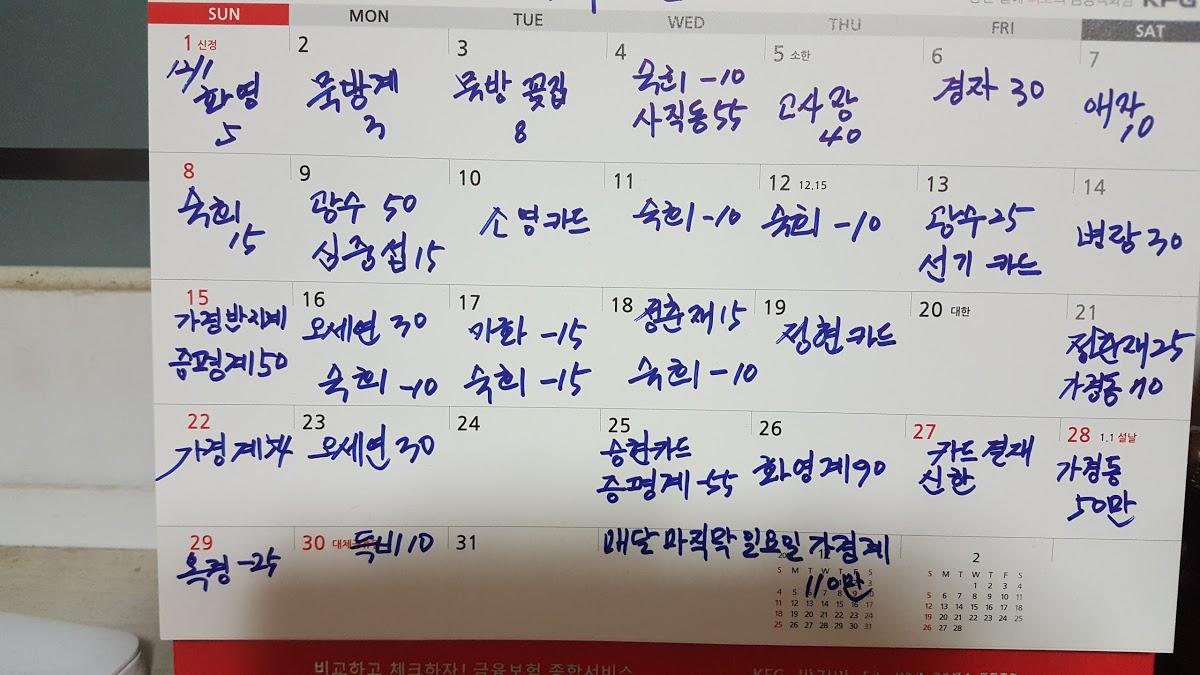 KFG
SUN MON TUE WED THU FRI SAT
1 신정
12/1
화영
5
2
묵방계
3
3
묵방 꽃집
8
4
숙희 -10
사직동 55
5 소한
고사장
40
6
경자 30
7
애자
10
8
숙희
15
9
광수 50
심중섭 15
10
소영카드
11
숙희 -10
12 12.15
숙희 -10
13
광수 25
선기 카드
14
병랑 30
15
가경반지계
증평계 50
16
오세연 30
숙희 -10
17
마화 -15
숙희 -15
18
정춘재 15
숙희 -10
19
정현카드
20 대한
21
25
가경동 70
22
가경계
23
오세연 30
24
25
승현카드
증평계 -55
26
화영계 90
27
카드결재
신한
28 1.1 설날
가경동
50만
29
옥령 -25
30
110
31
매달 마직막 일요일 가경계
110만
2
S M T W T F S
1 2 3 4
5 6 7 8 9 10 11
12 13 14 15 16 17 18
19 20 21 22 23 24 25
26 27 28
비교하고 체크하자! 금융보험 종합서비스
KFG